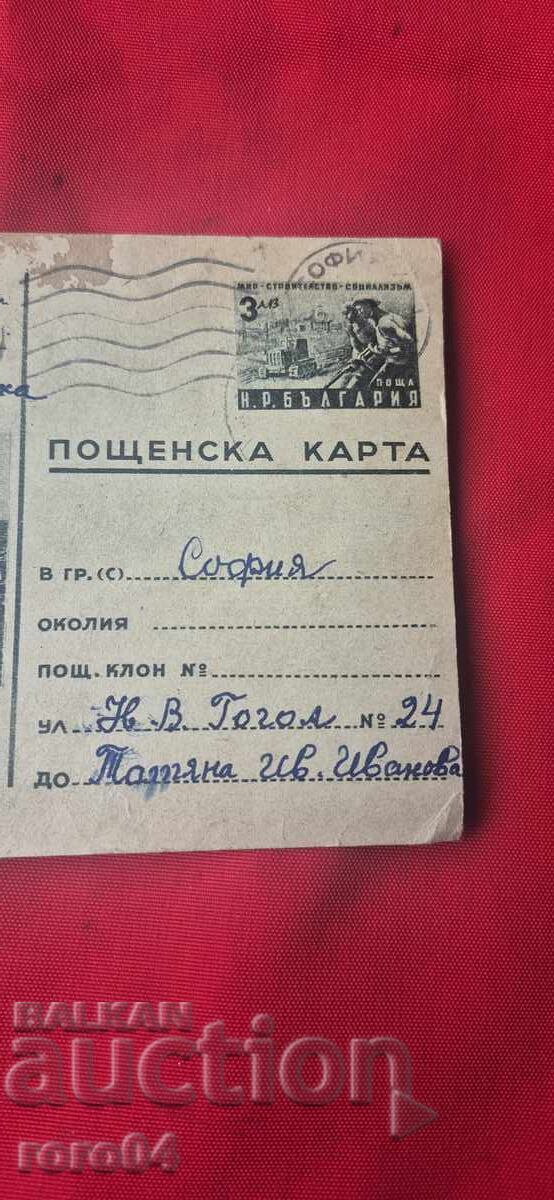 СОФИ
МИР - СТРОИТЕЛСТВО - СОЦИАЛИЗЪМ
3 ЛВ
ПОЩА
Н.Р. БЪЛГАРИЯ
ПОЩЕНСКА КАРТА
В ГР. (С) София
ОКОЛИЯ
ПОЩ. КЛОН №
УЛ. Н. В. Гогол № 24
ДО Татяна Ив. Иванова
BALKAN
auction
roro04